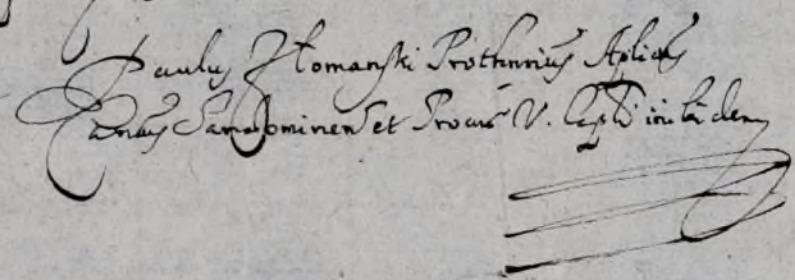 Paulus Złomanski Prothnrius Aplicus
Canus Sandominen et Procur V. Captli